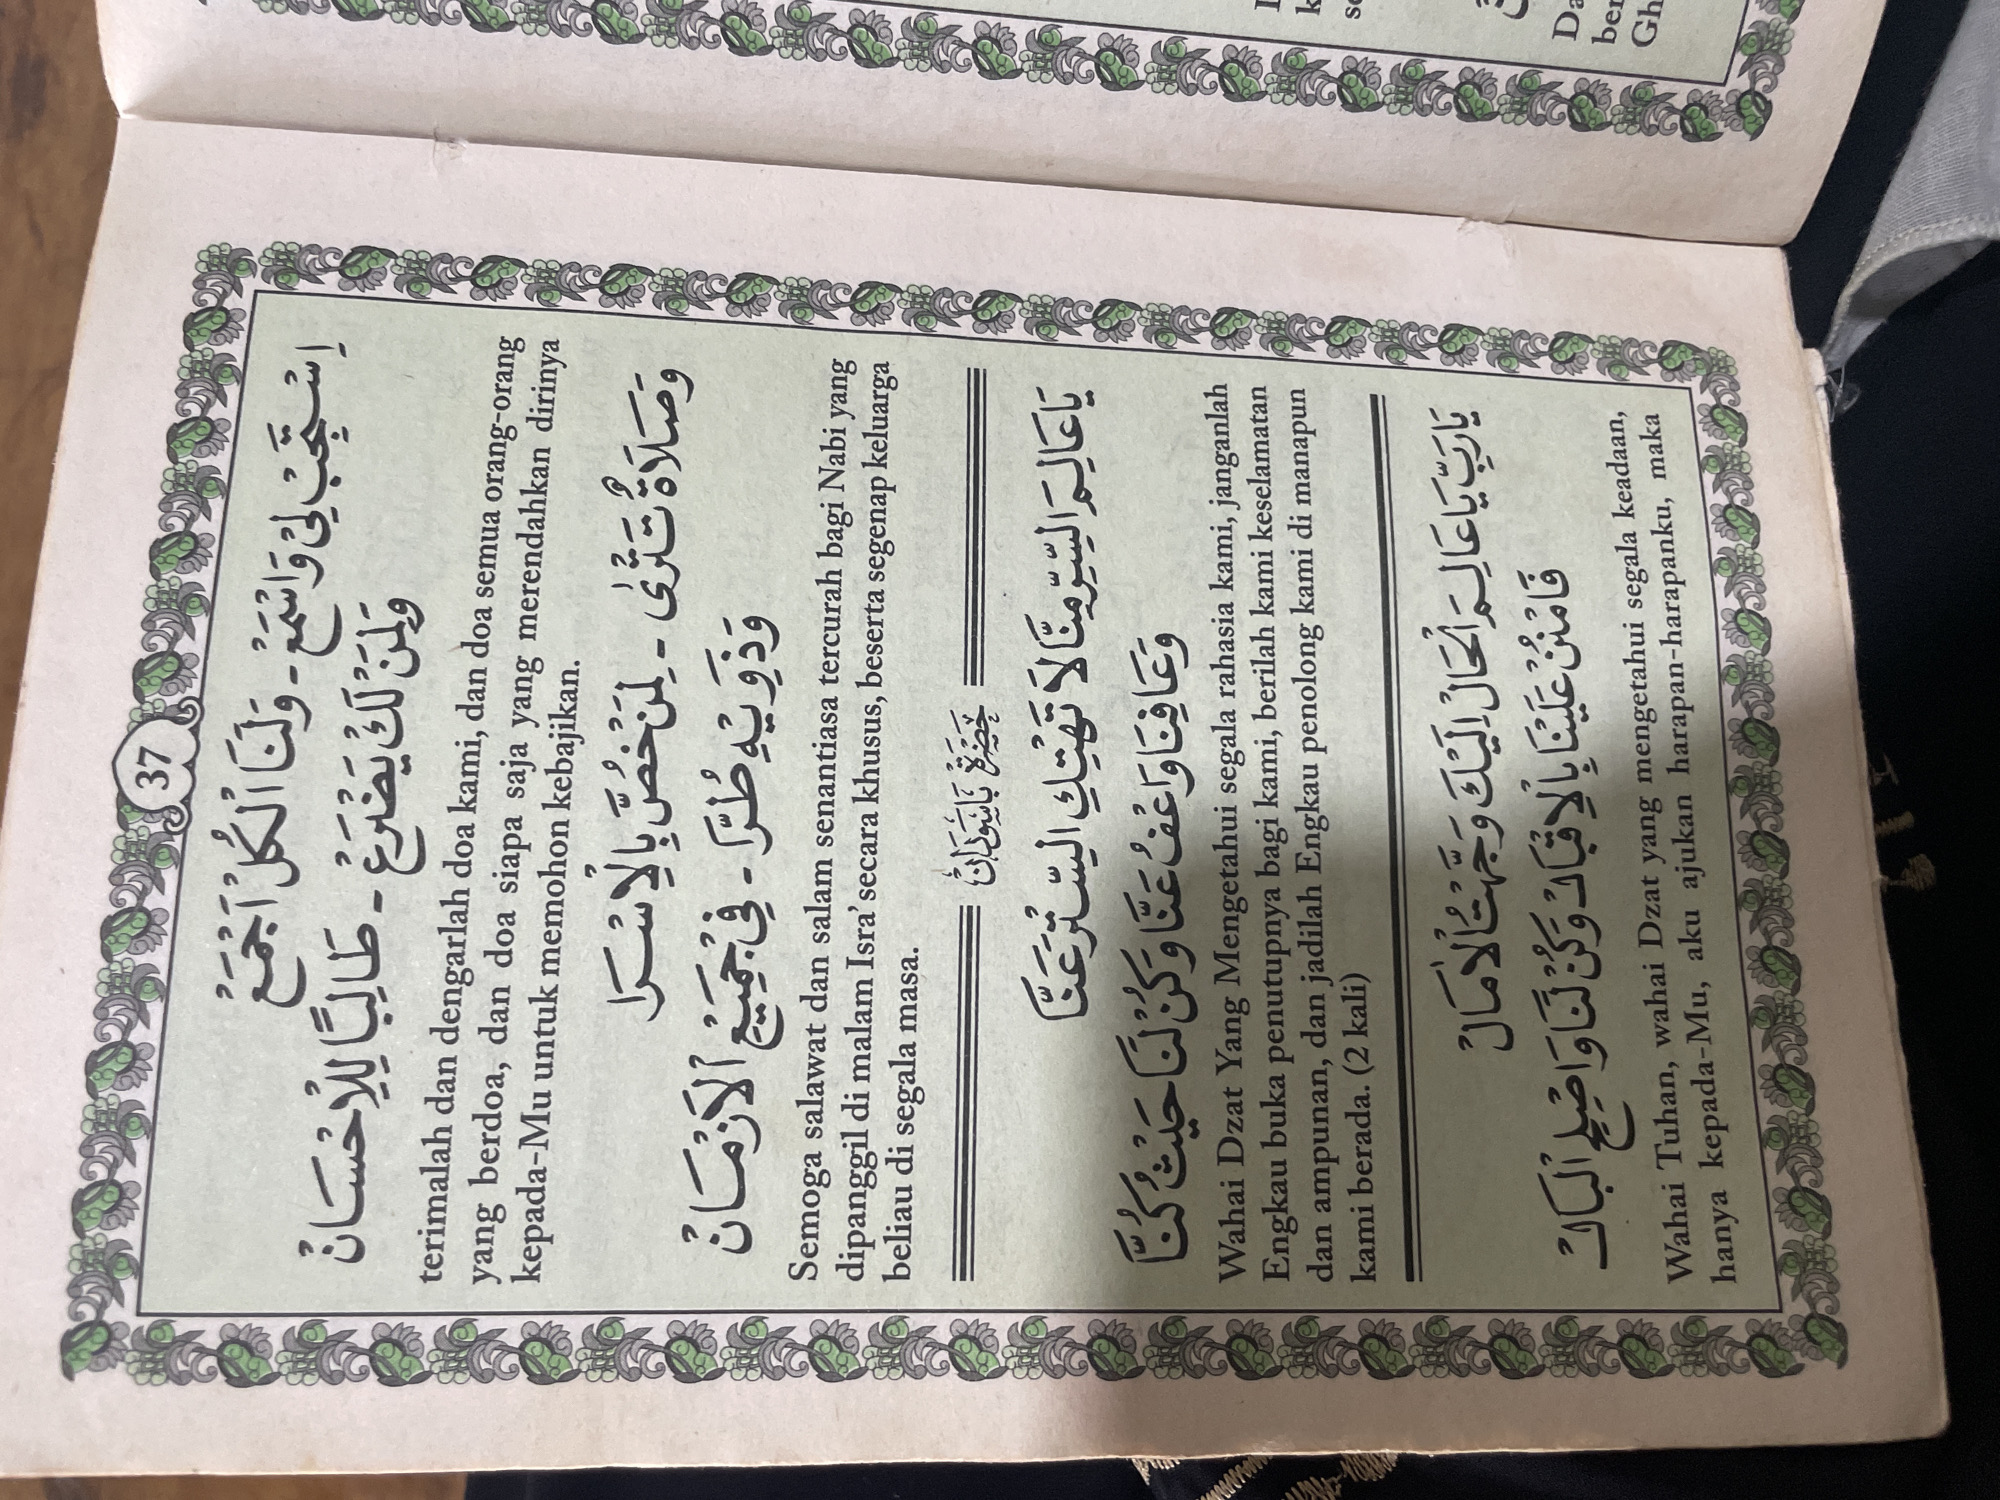 37
اِسْتَجِبْ لِيْ وَاسْمَعْ - وَلَنَا الْكُلُّ اَجْمَعْ
وَلِمَنْ لَكْ يَضْرَعْ - طَالِبًا لِلْاِحْسَانْ
terimalah dan dengarlah doa kami, dan doa semua orang-orang
yang berdoa, dan doa siapa saja yang merendahkan dirinya
kepada-Mu untuk memohon kebajikan.
وَصَلَاةٌ تَتْرٰى - لِمَنْ خُصَّ بِالْاِسْرَا
وَذَوِيْهِ طُرَّا - فِيْ جَمِيْعِ الْاَزْمَانْ
Semoga salawat dan salam senantiasa tercurah bagi Nabi yang
dipanggil di malam Isra’ secara khusus, beserta segenap keluarga
beliau di segala masa.
يَا عَالِمَ السِّرِّ مِنَّا لَا تَهْتِكِ السِّتْرَ عَنَّا
وَعَافِنَا وَاعْفُ عَنَّا وَكُنْ لَنَا حَيْثُ كُنَّا
Wahai Dzat Yang Mengetahui segala rahasia kami, janganlah
Engkau buka penutupnya bagi kami, berilah kami keselamatan
dan ampunan, dan jadilah Engkau penolong kami di manapun
kami berada. (2 kali)
يَا رَبِّ يَا عَالِمَ الْحَالْ اِلَيْكَ وَجَّهْتُ الْاٰمَالْ
فَامْنُنْ عَلَيْنَا بِالْاِقْبَالْ وَكُنْ لَنَا وَاصْلِحِ الْبَالْ
Wahai Tuhan, wahai Dzat yang mengetahui segala keadaan,
hanya kepada-Mu, aku ajukan harapan-harapanku, maka